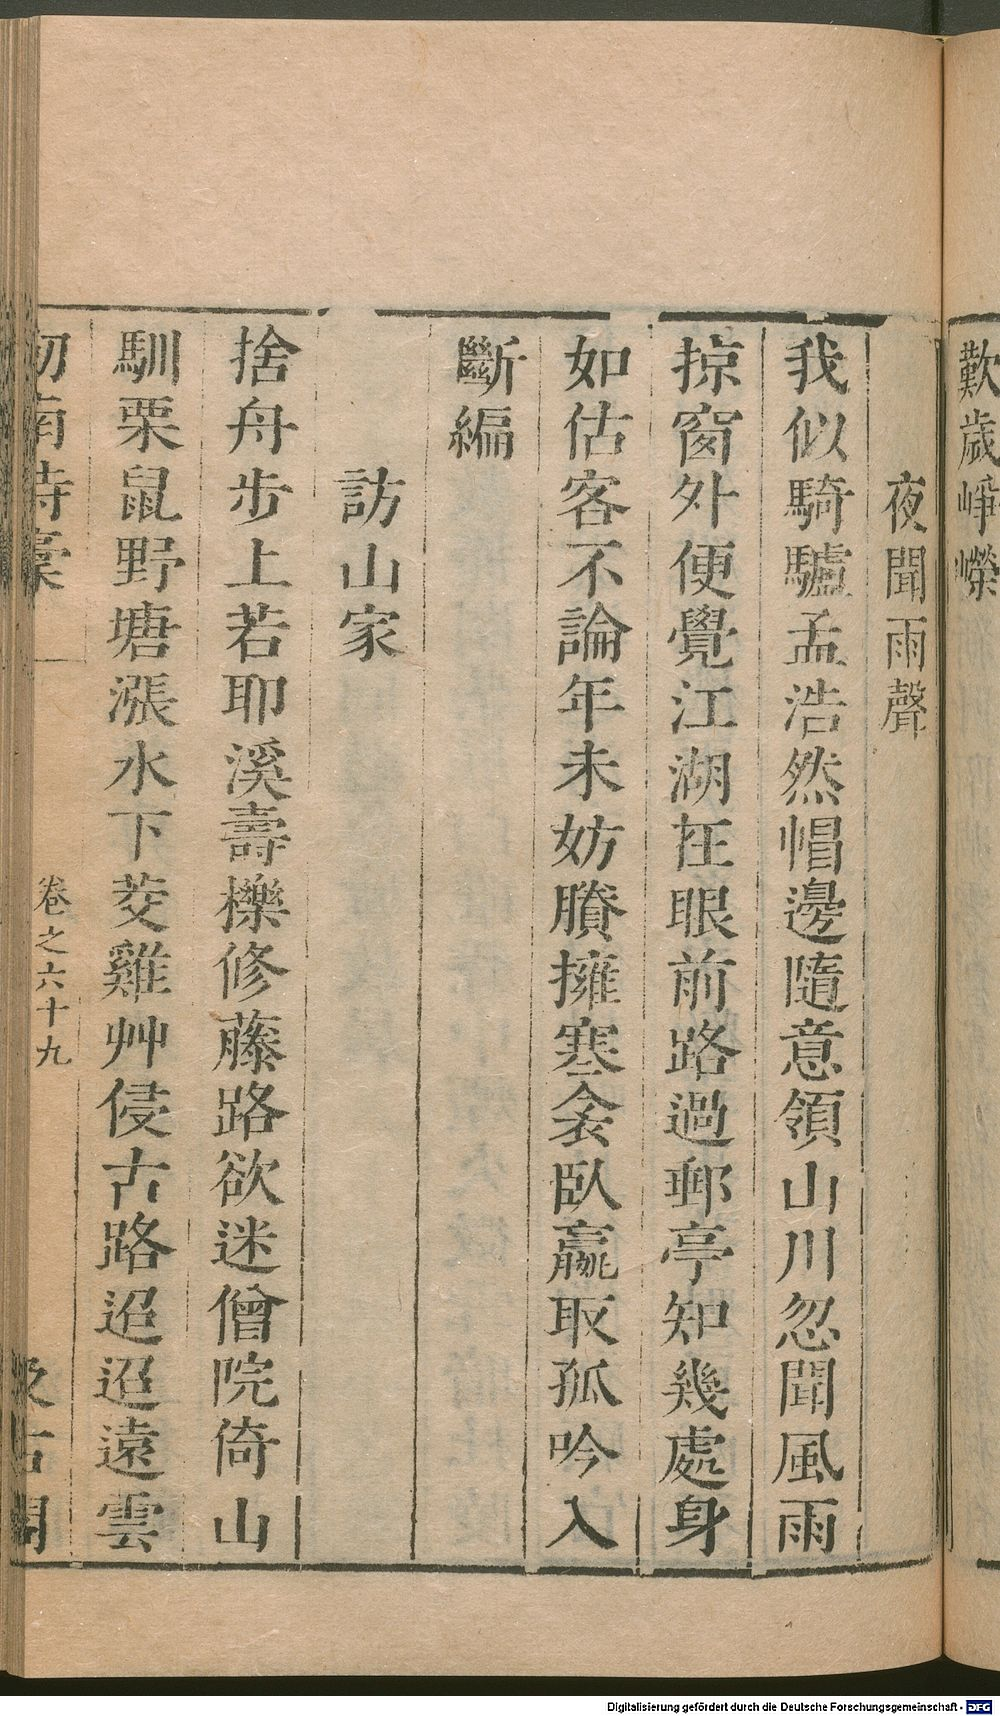 歎歲崢嶸
夜聞雨聲
我似騎驢孟浩然帽邊隨意領山川忽聞風雨
掠窗外便覺江湖在眼前路過郵亭知幾處身
如估客不論年未妨賸擁寒衾臥贏取孤吟入
斷編
訪山家
捨舟步上若耶溪壽櫟修藤路欲迷僧院倚山
馴栗鼠野塘漲水下茭雞艸侵古路迢迢遠雲
劒南詩稾
卷之六十九
汲古閣
Digitalisierung gefördert durch die Deutsche Forschungsgemeinschaft - DFG